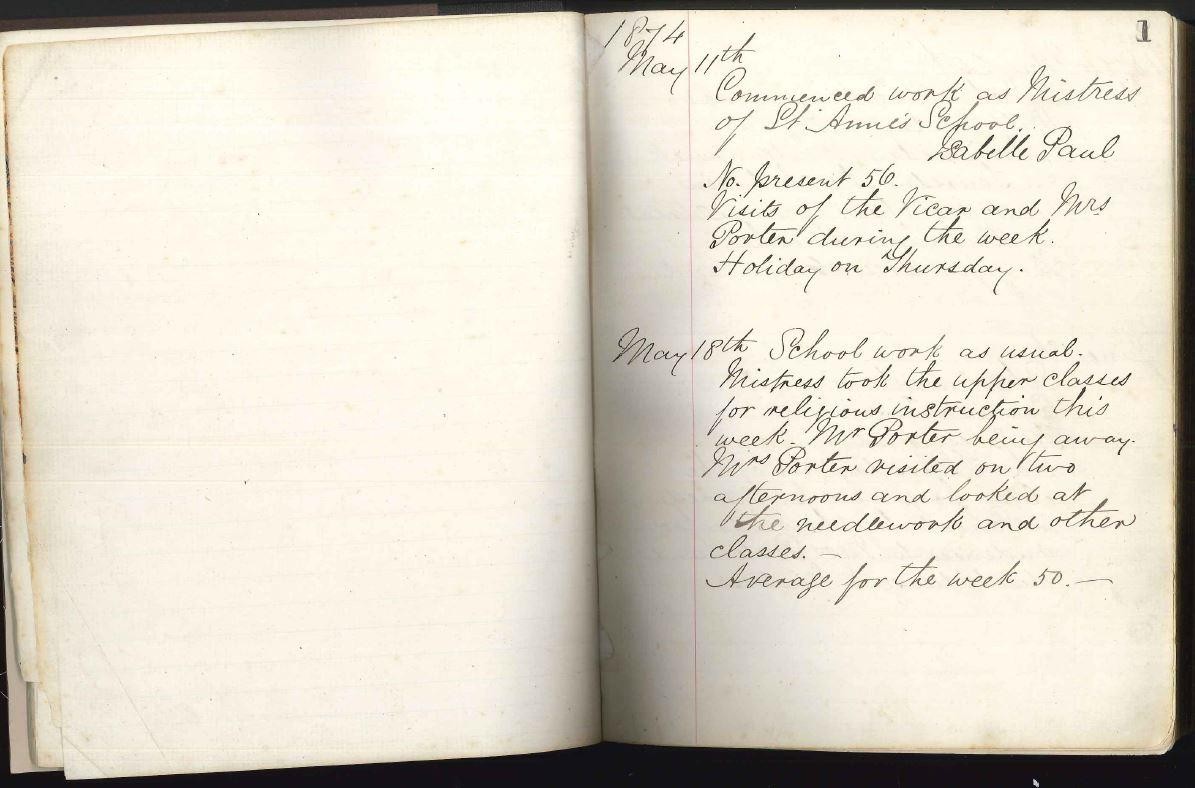 1
1874
May 11th
Commenced work as Mistress
of St Anne's School.
Isabelle Paul
No. present 56.
Visits of the Vicar and Mrs
Porter during the week.
Holiday on Thursday.
May 18th School work as usual.
Mistress took the upper classes
for religious instruction this
week. Mr Porter being away.
Mrs Porter visited on two
afternoons and looked at
the needlework and other
classes. —
Average for the week 50. —